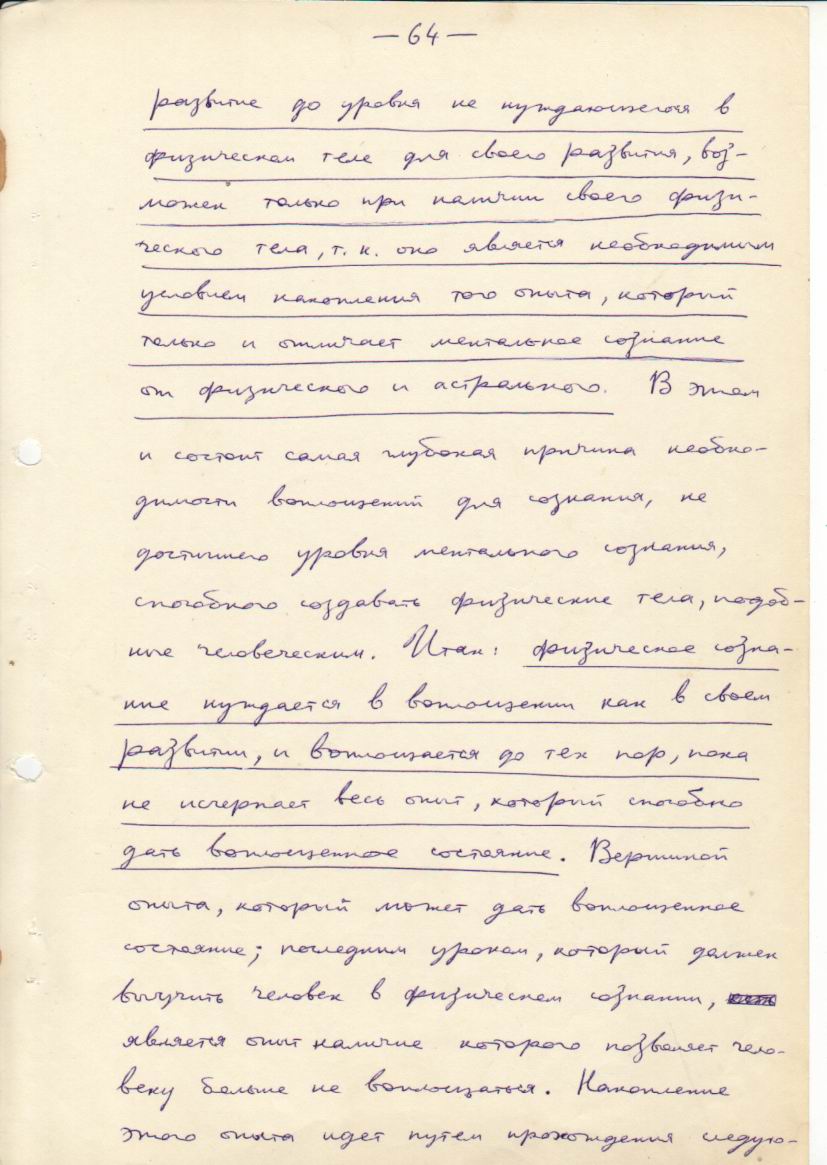 — 64 —
развитие до уровня не нуждающегося в
физическом теле для своего развития, воз-
можен только при наличии своего физи-
ческого тела, т. к. оно является необходимым
условием накопления того опыта, который
только и отличает ментальное сознание
от физического и астрального. В этом
и состоит самая глубокая причина необхо-
димости воплощений для сознания, не
достигшего уровня ментального сознания,
способного создавать физические тела, подоб-
ные человеческим. Итак: физическое созна-
ние нуждается в воплощении как в своем
развитии, и воплощается до тех пор, пока
не исчерпает весь опыт, который способно
дать воплощенное состояние. Вершиной
опыта, который может дать воплощенное
состояние; последним уроком, который должен
выучить человек в физическом сознании,
является опыт наличие которого позволяет чело-
веку больше не воплощаться. Накопление
этого опыта идет путем прохождения следую-